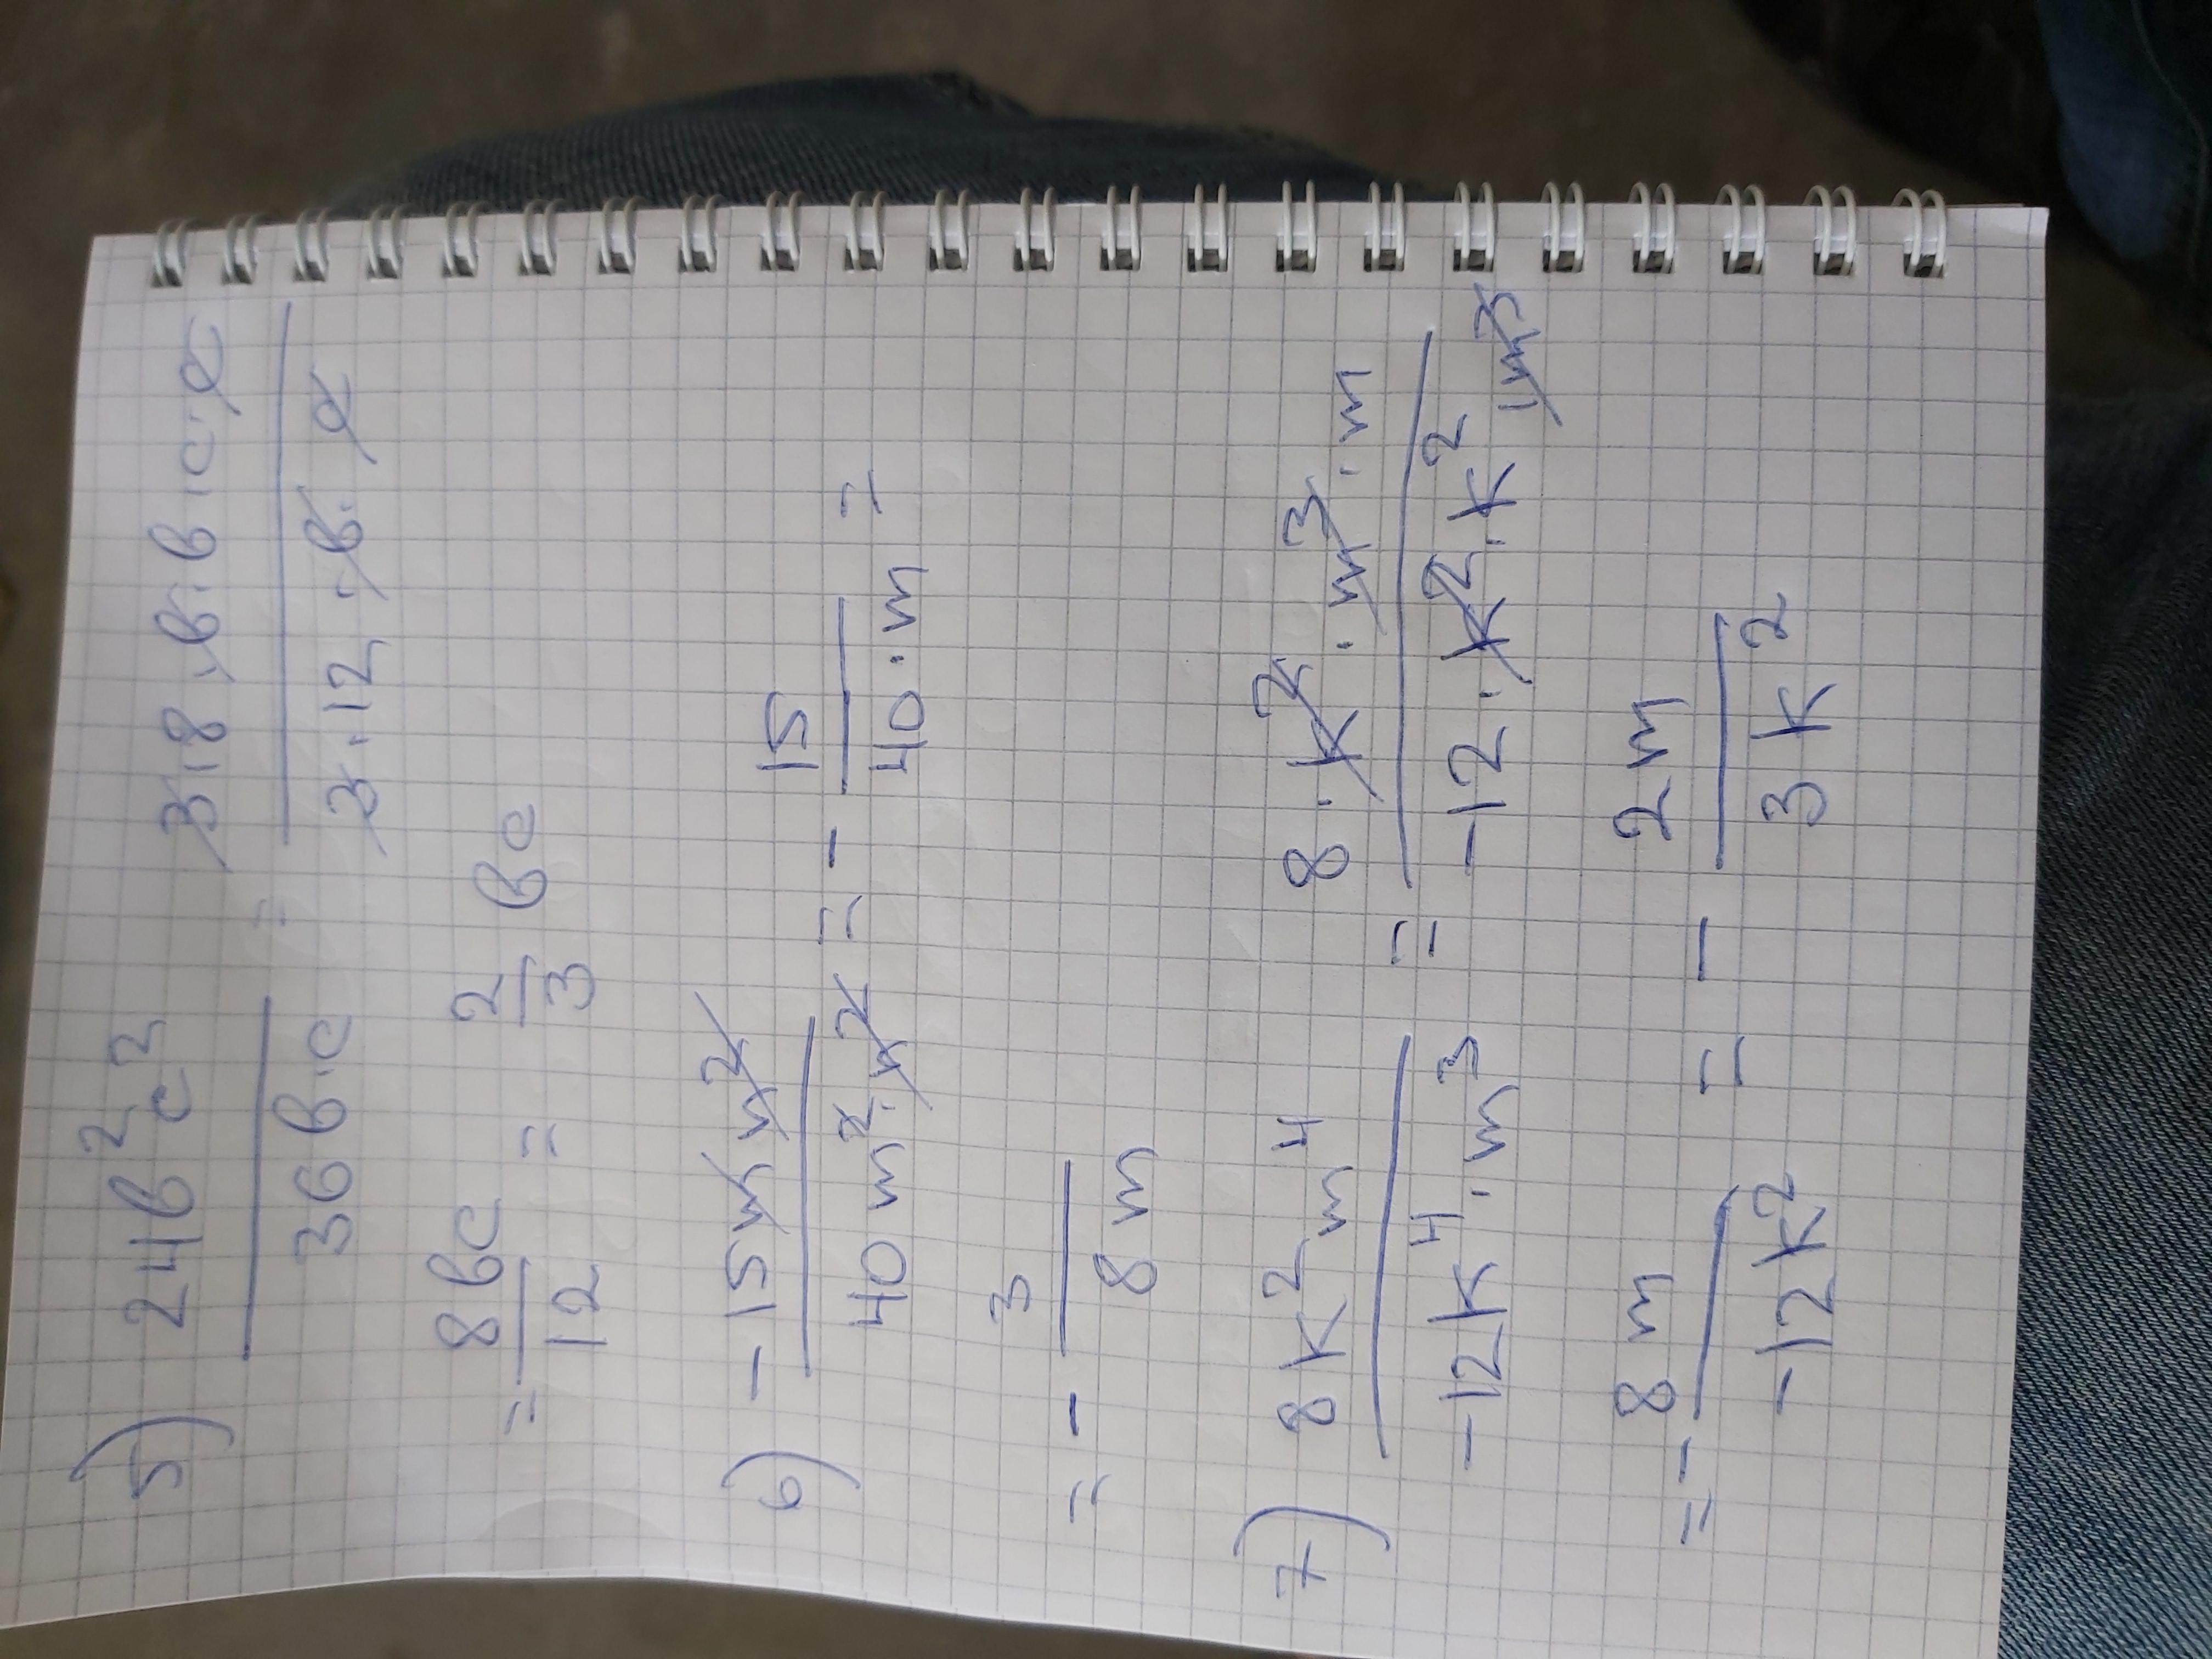 5) 24в²c² / 36в·c = 3·8·в·в·c·c / 3·12·в·c
= 8вc / 12 = 2/3 вc
6) -15mn² / 40m²·n² = - 15 / 40·m =
= - 3 / 8m
7) 8k²m⁴ / -12k⁴·m³ = 8·k²·m³·m / -12·k²·k²·m³
= - 8m / -12k² = - 2m / 3k²